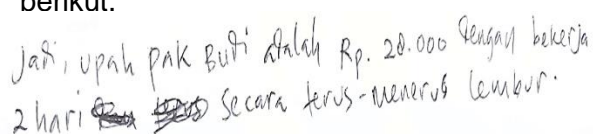 berikut.
Jadi, upah pak Budi adalah Rp. 20.000 dengan bekerja
2 hari secara terus-menerus lembur.